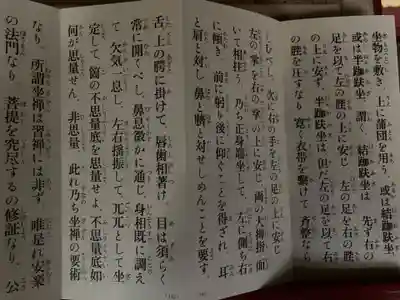 坐物を敷き 上に蒲団を用う、或は結跏趺坐
或は半跏趺坐 謂く 結跏趺坐は 先ず右の
足を以て左の䏶の上に安じ 左の足を右の䏶
の上に安ず、半跏趺坐は 但だ左の足を以て右
の䏶を圧すなり 寛く衣帯を繋けて 斉整なら
しむべし、次に右の手を左の足の上に安じ
左の掌を右の掌の上に安じ 両の大拇指 面
いて相拄う 乃ち正身端坐して 左に側ち右
に傾き 前に躬り後に仰ぐことを得ざれ、耳
と肩と対し 鼻と臍と対せしめんことを要す、
舌 上の腭に掛けて、唇歯相著け 目は須らく
常に開くべし、鼻息微かに通じ 身相既に調え
て 欠気一息し、左右揺振して、兀兀として坐
定して 箇の不思量底を思量せよ、不思量底如
何が思量せん、非思量、此れ乃ち坐禅の要術
なり、所謂坐禅は習禅には非ず 唯是れ安楽
の法門なり 菩提を究尽するの修証なり、公